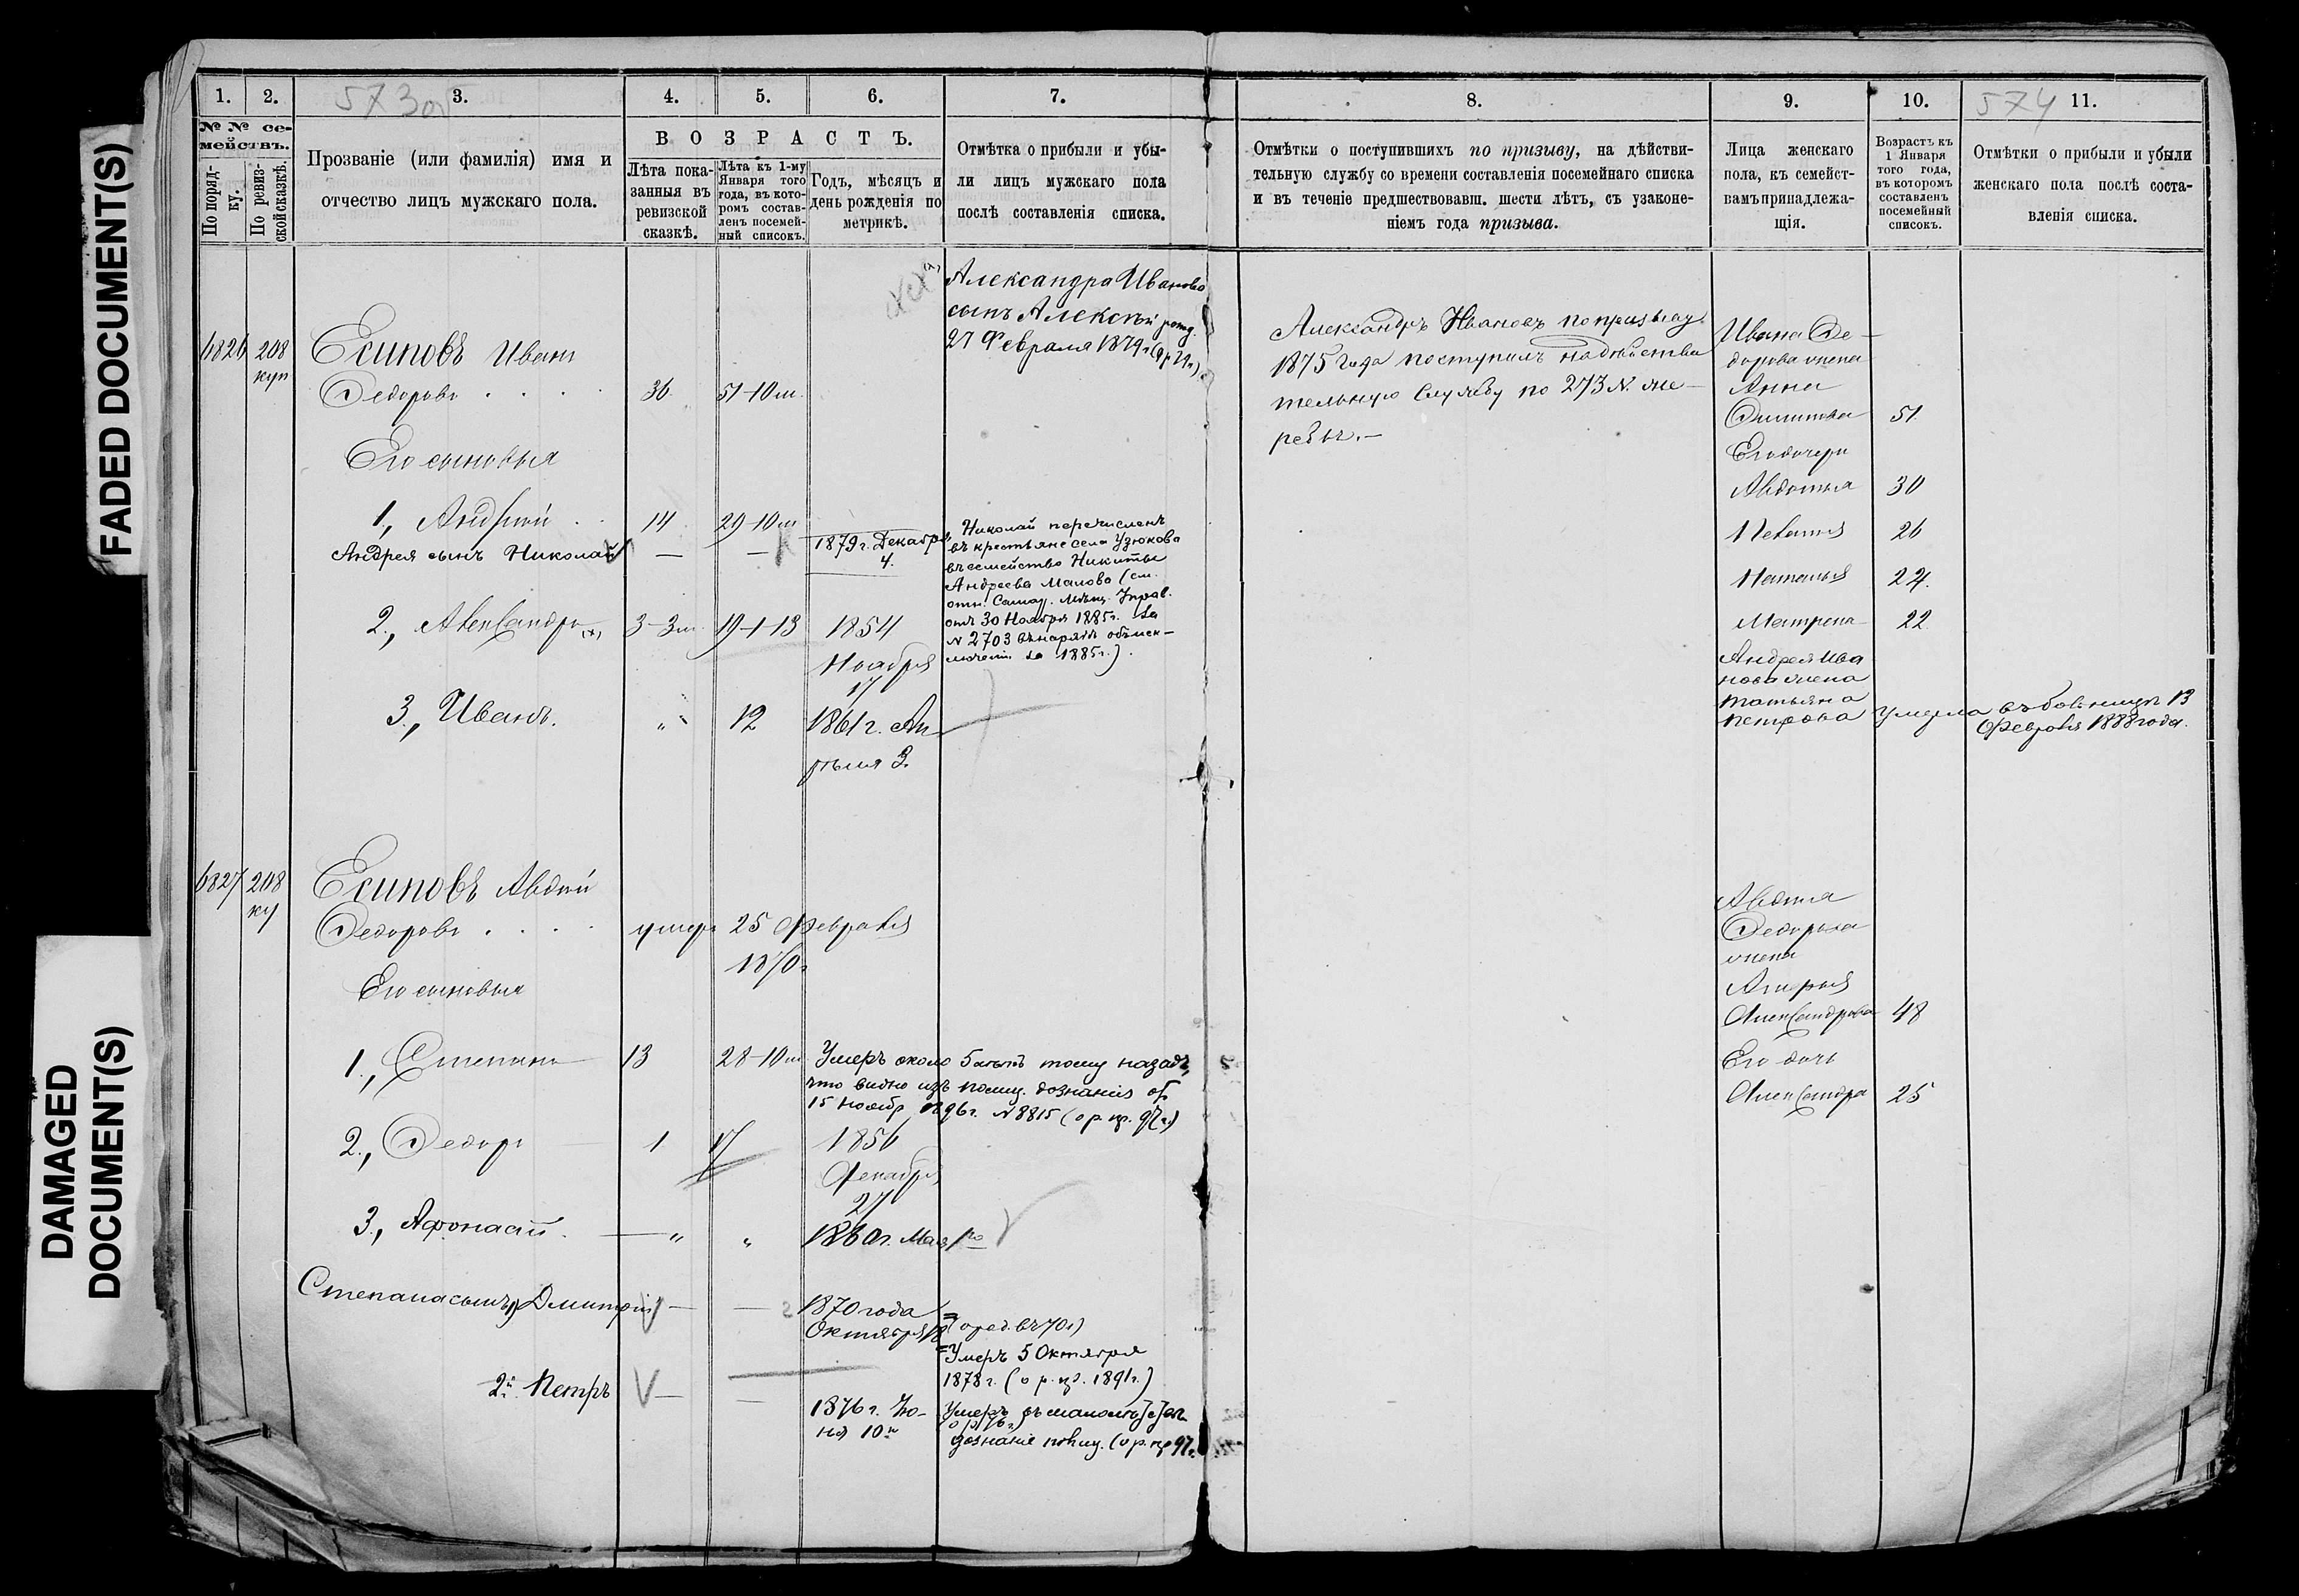 FADED DOCUMENT(S)
DAMAGED
DOCUMENT(S)
573об
1.
2.
3.
4.
5.
6.
7.
№ № се-
мействъ.
По поряд-
ку.
По ревиз-
ской сказкѣ.
Прозваніе (или фамилія) имя и
отчество лицъ мужскаго пола.
ВОЗРАСТЪ.
Лѣта пока-
занныя въ
ревизской
сказкѣ.
Лѣта къ 1-му
Января того
года, въ кото-
ромъ состав-
ленъ посемей-
ный списокъ.
Годъ, мѣсяцъ и
день рожденія по
метрикѣ.
Отмѣтка о прибыли и убы-
ли лицъ мужскаго пола
послѣ составленія списка.
Александра Иванова
сынъ Алексѣй рожд.
27 Февраля 1879г
6826 208
куп
Есиповъ Иванъ
Ѳедоровъ 36 51-10м.
Его сыновья
1., Андрей 14 29-10м
Андрея сынъ Николай — — 1879г. Декабря
4.
Николай перечисленъ
въ крестьяне села Узюкова
въ семейство Никиты
Андреева Малово (см.
отн. Самар. Мѣщ. Управ.
отъ 30 Ноября 1885г. за
№ 2703 въ нарядѣ объ иск-
люченіи за 1885г.).
2., Александръ (х) 3-3м. 19-1-13 1854
Ноября
17
3., Иванъ. „ 12 1861г. Ап-
рѣля 3.
6827 208
ку
Есиповъ Авдѣй
Ѳедоровъ умеръ 25 Февраля
1870г
Его сыновья
1., Степанъ 13 28-10м
Умеръ около 5 лѣтъ тому назадъ,
что видно изъ полиц. дознанія от
15 Ноябр 1896г. №8815 (о р. пр. 97г.)
2., Ѳедоръ 1 17 1856
Декабря
27
3., Афонасій. — „ „ 1860г. Мая 1го
Степана сынъ 1) Дмитрій — — 1870 года
Октября 18
(оред. въ 70г)
Умеръ 5 Октября
1878г. (о р. пр. 1891г.)
2й Петръ — — 1876г. Ію-
ня 10го
Умеръ въ малолѣтст.
дознаніе полиц. (о р. пр 97г.
8.
9.
10.
574
11.
Отмѣтки о поступившихъ по призыву, на дѣйстви-
тельную службу со времени составленія посемейнаго списка
и въ теченіе предшествовавш. шести лѣтъ, съ узаконе-
ніемъ года призыва.
Лица женскаго
пола, къ семейст-
вамъ принадлежа-
щія.
Возрастъ къ
1 Января
того года,
въ которомъ
составленъ
посемейный
списокъ.
Отмѣтки о прибыли и убыли
женскаго пола послѣ соста-
вленія списка.
Александръ Ивановъ по призыву
1875 года поступилъ на дѣйстви
тельную службу по 273 №. же-
ребью.—
Ивана Ѳе-
дорова жена
Анна
51
Его дочери
Авдотья 30
Пелагея 26
Наталья 24.
Матрена 22
Андрея Ива
нова жена
Татьяна
Петрова умерла въ больницѣ 13
Февраля 1888 года.
Авдѣя
Ѳедорова
жена
Александрова 48
Его дочь
Александра 25